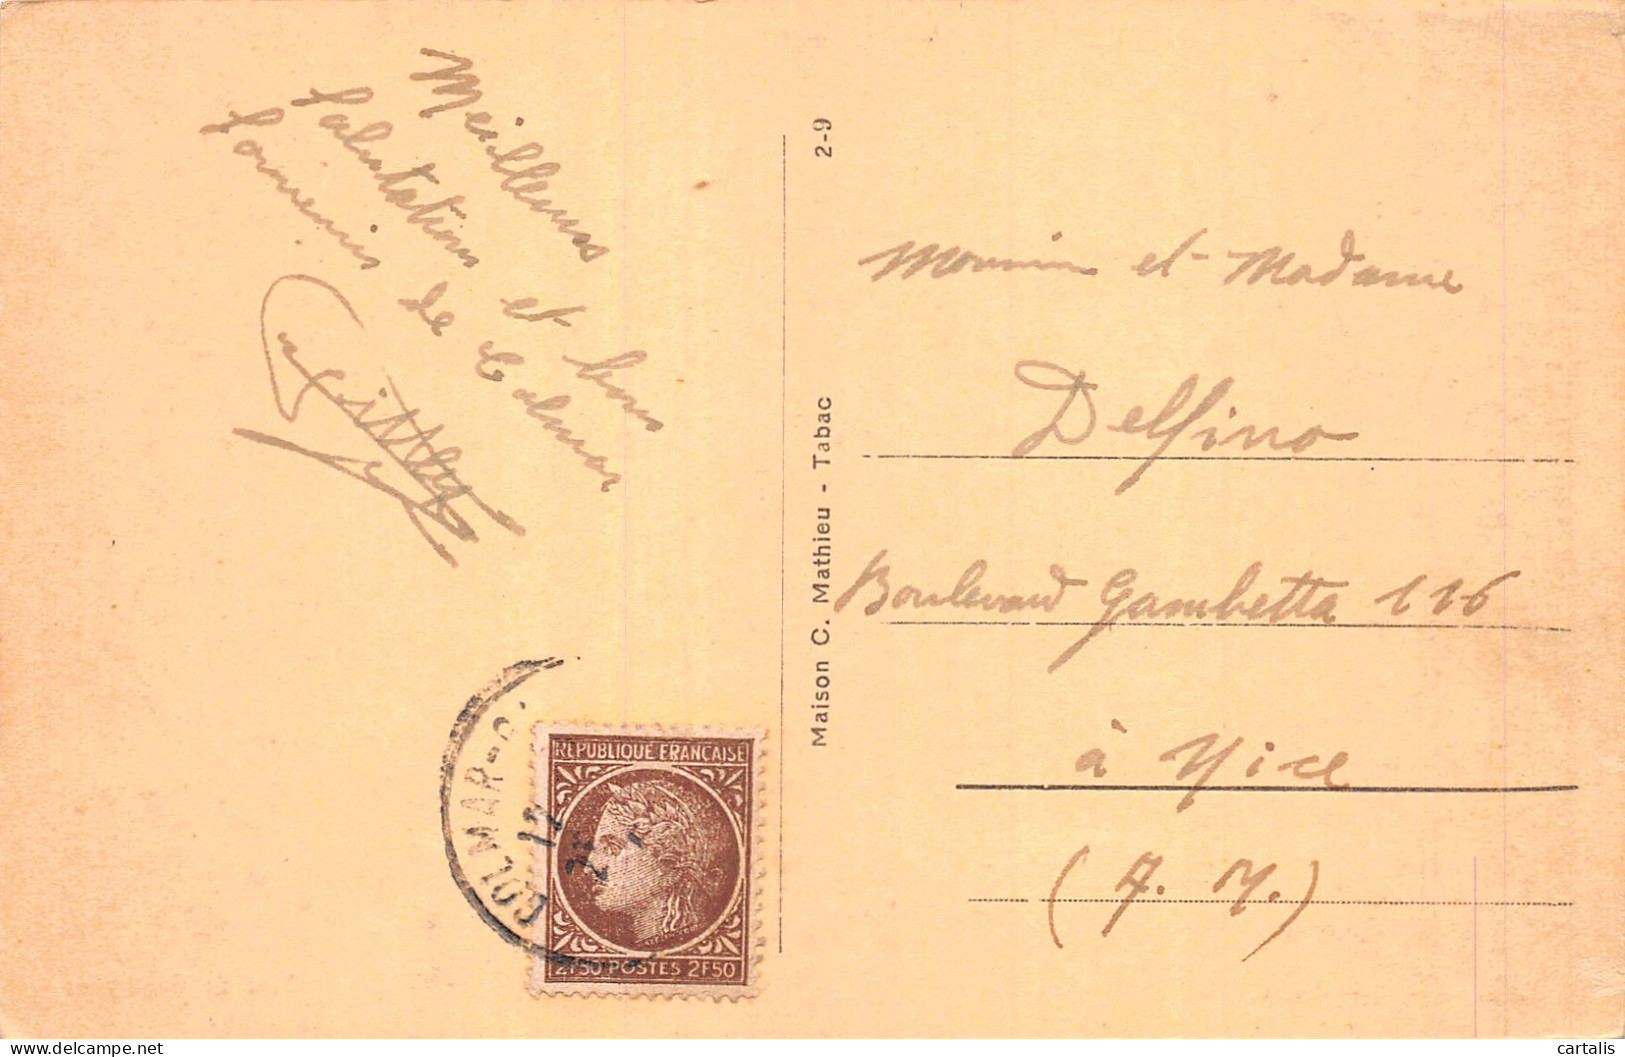 Meilleures
salutations et bons
souvenirs de Colmar
Maison C. Mathieu - Tabac 2-9
Monsieur et Madame
Delfino
Boulevard Gambetta 116
à Nice
(A. M.)
COLMAR-
12
REPUBLIQUE FRANÇAISE
2F50 POSTES 2F50
cartalis